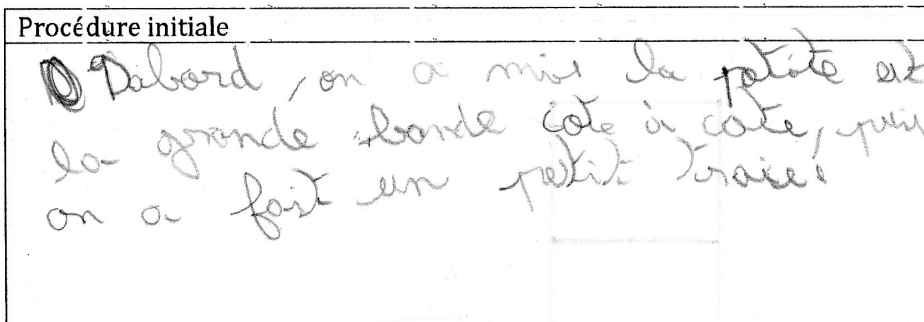 Procédure initiale
Dabord, on a mis la petite et
la grande bande cote à cote, puis
on a fait un petit